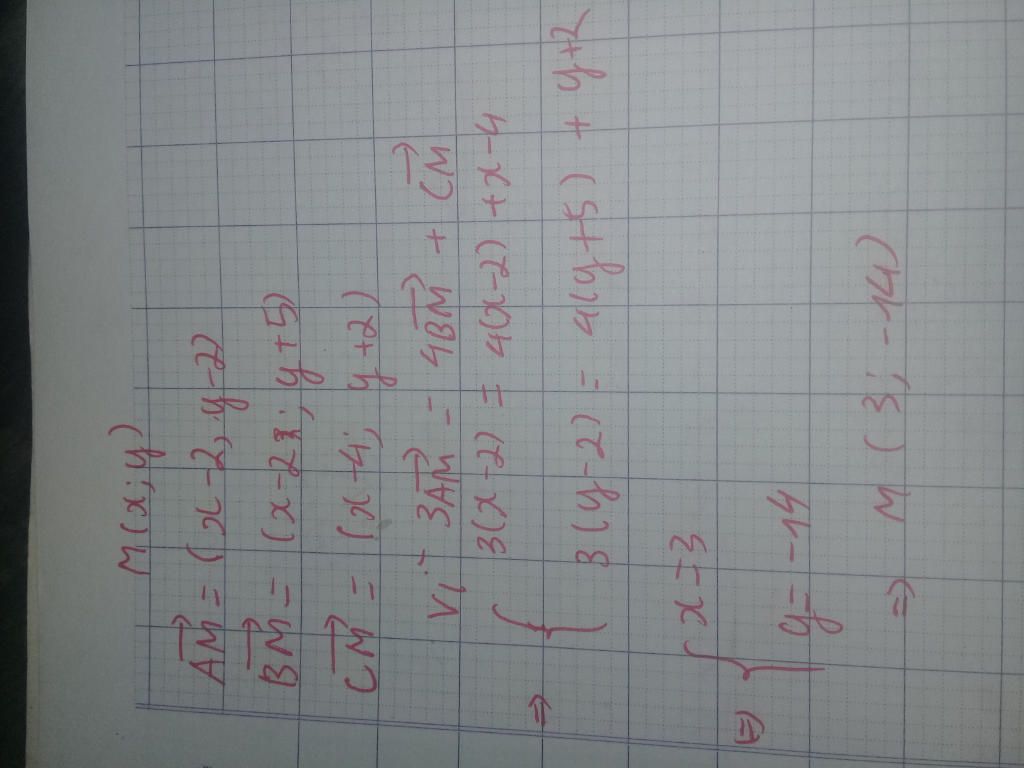 M(x; y)
AM→ = (x-2; y-2)
BM→ = (x-2; y+5)
CM→ = (x-4; y+2)
Vì 3AM→ = 4BM→ + CM→
⇒ { 3(x-2) = 4(x-2) + x-4
3(y-2) = 4(y+5) + y+2
⇔ { x=3
y=-14
⇒ M (3; -14)